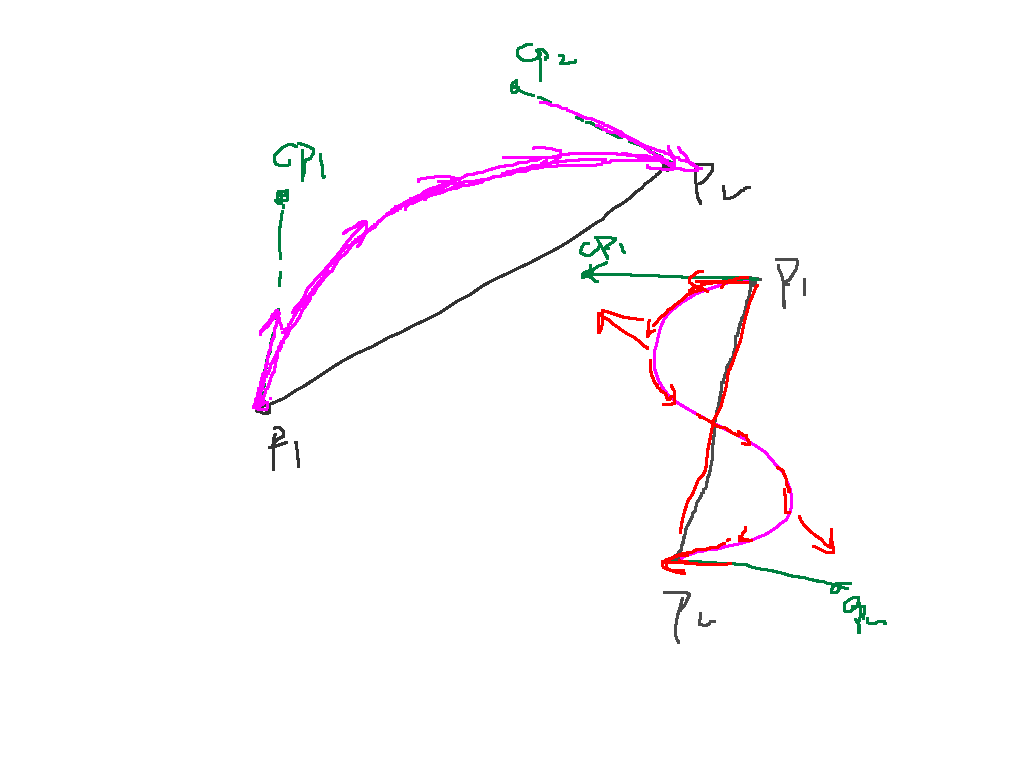 CP2
CP1
P2
CP1
P1
P1
CP2
P2